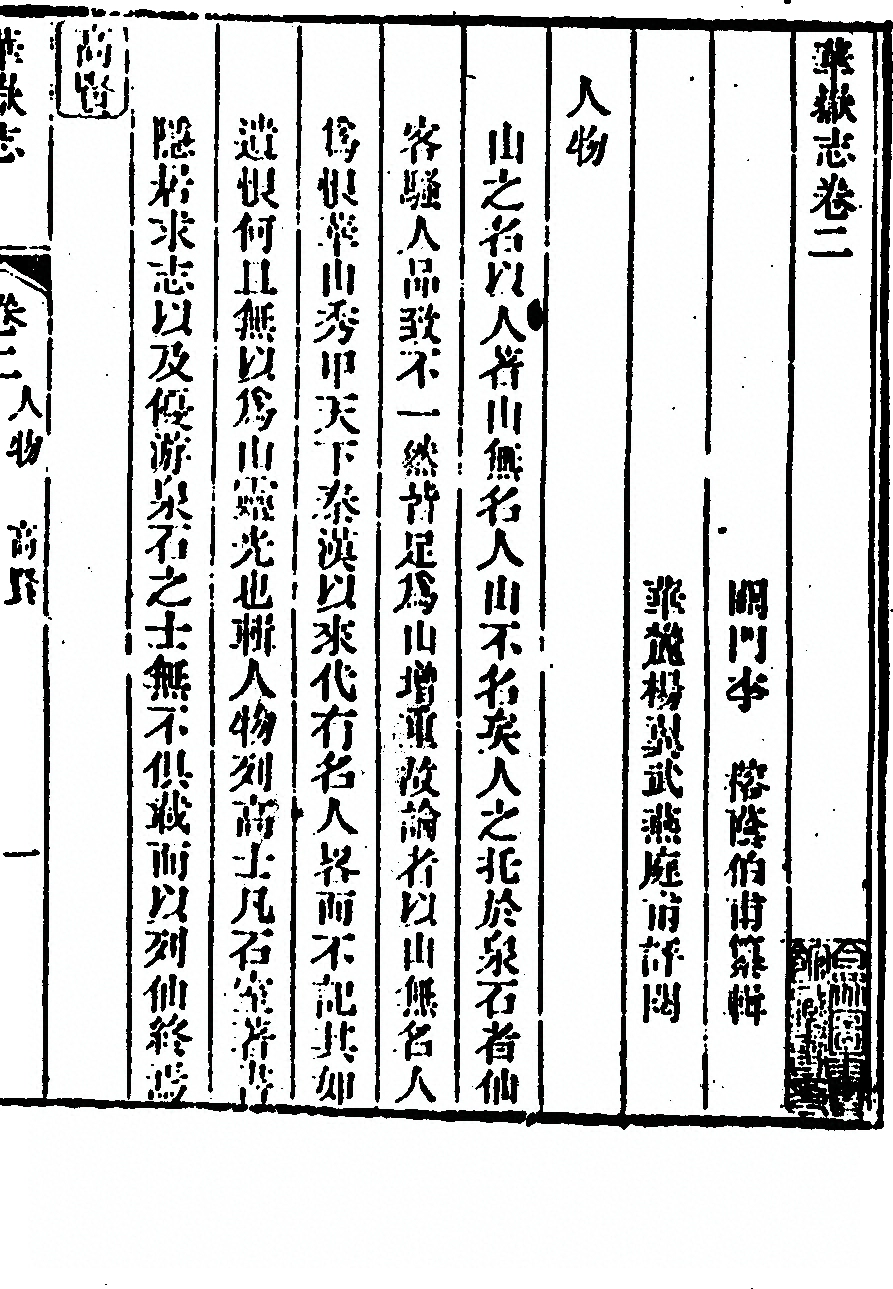 華嶽志卷二
關門李　榕蔭伯甫纂輯
華麓楊翼武燕庭甫評閱
人物
山之名以人著山無名人山不名矣人之托於泉石者仙
客騷人品致不一然皆足爲山增重故論者以山無名人
爲恨華山秀甲天下秦漢以來代有名人畧而不記其如
遺恨何且無以爲山靈光也輯人物列高士凡石室著書
隱居求志以及優游泉石之士無不俱載而以列仙終焉
高賢
華嶽志
卷二 人物　高賢
一